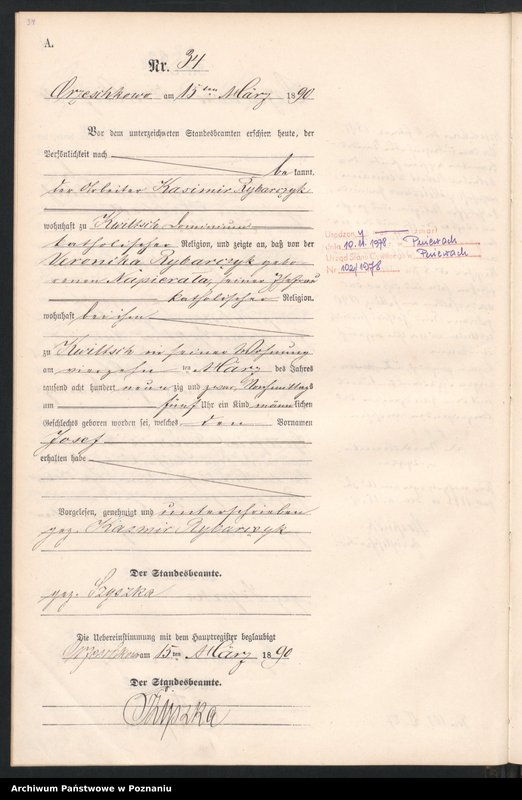 34
A.
Nr. 34
Orzeschkowo am 15ten März 1890
Vor dem unterzeichneten Standesbeamten erschien heute, der
Persönlichkeit nach
be kannt,
der Arbeiter Kasimir Rybarczyk
wohnhaft zu Kwiltsch Dominium
katholischer Religion, und zeigte an, daß von der
Veronika Rybarczyk gebo-
renen Napierala, seiner Ehefrau
katholischer Religion,
wohnhaft bei ihm
zu Kwiltsch in seiner Wohnung
am vierzehn ten März des Jahres
tausend acht hundert neun zig und zwar Nachmittags
um fünf Uhr ein Kind männlichen
Geschlechts geboren worden sei, welches den Vornamen
Josef
erhalten habe
Vorgelesen, genehmigt und unterschrieben
gez. Kasmir Rybarczyk
Der Standesbeamte.
gez. Szyszka
Die Uebereinstimmung mit dem Hauptregister beglaubigt
Orzeschkowo am 15ten März 1890
Der Standesbeamte.
Szyszka
dnia 10.11.1978. Pniewach
Urząd Stanu Cywilnego w Pniewach
Nr 102/1978
Archiwum Państwowe w Poznaniu